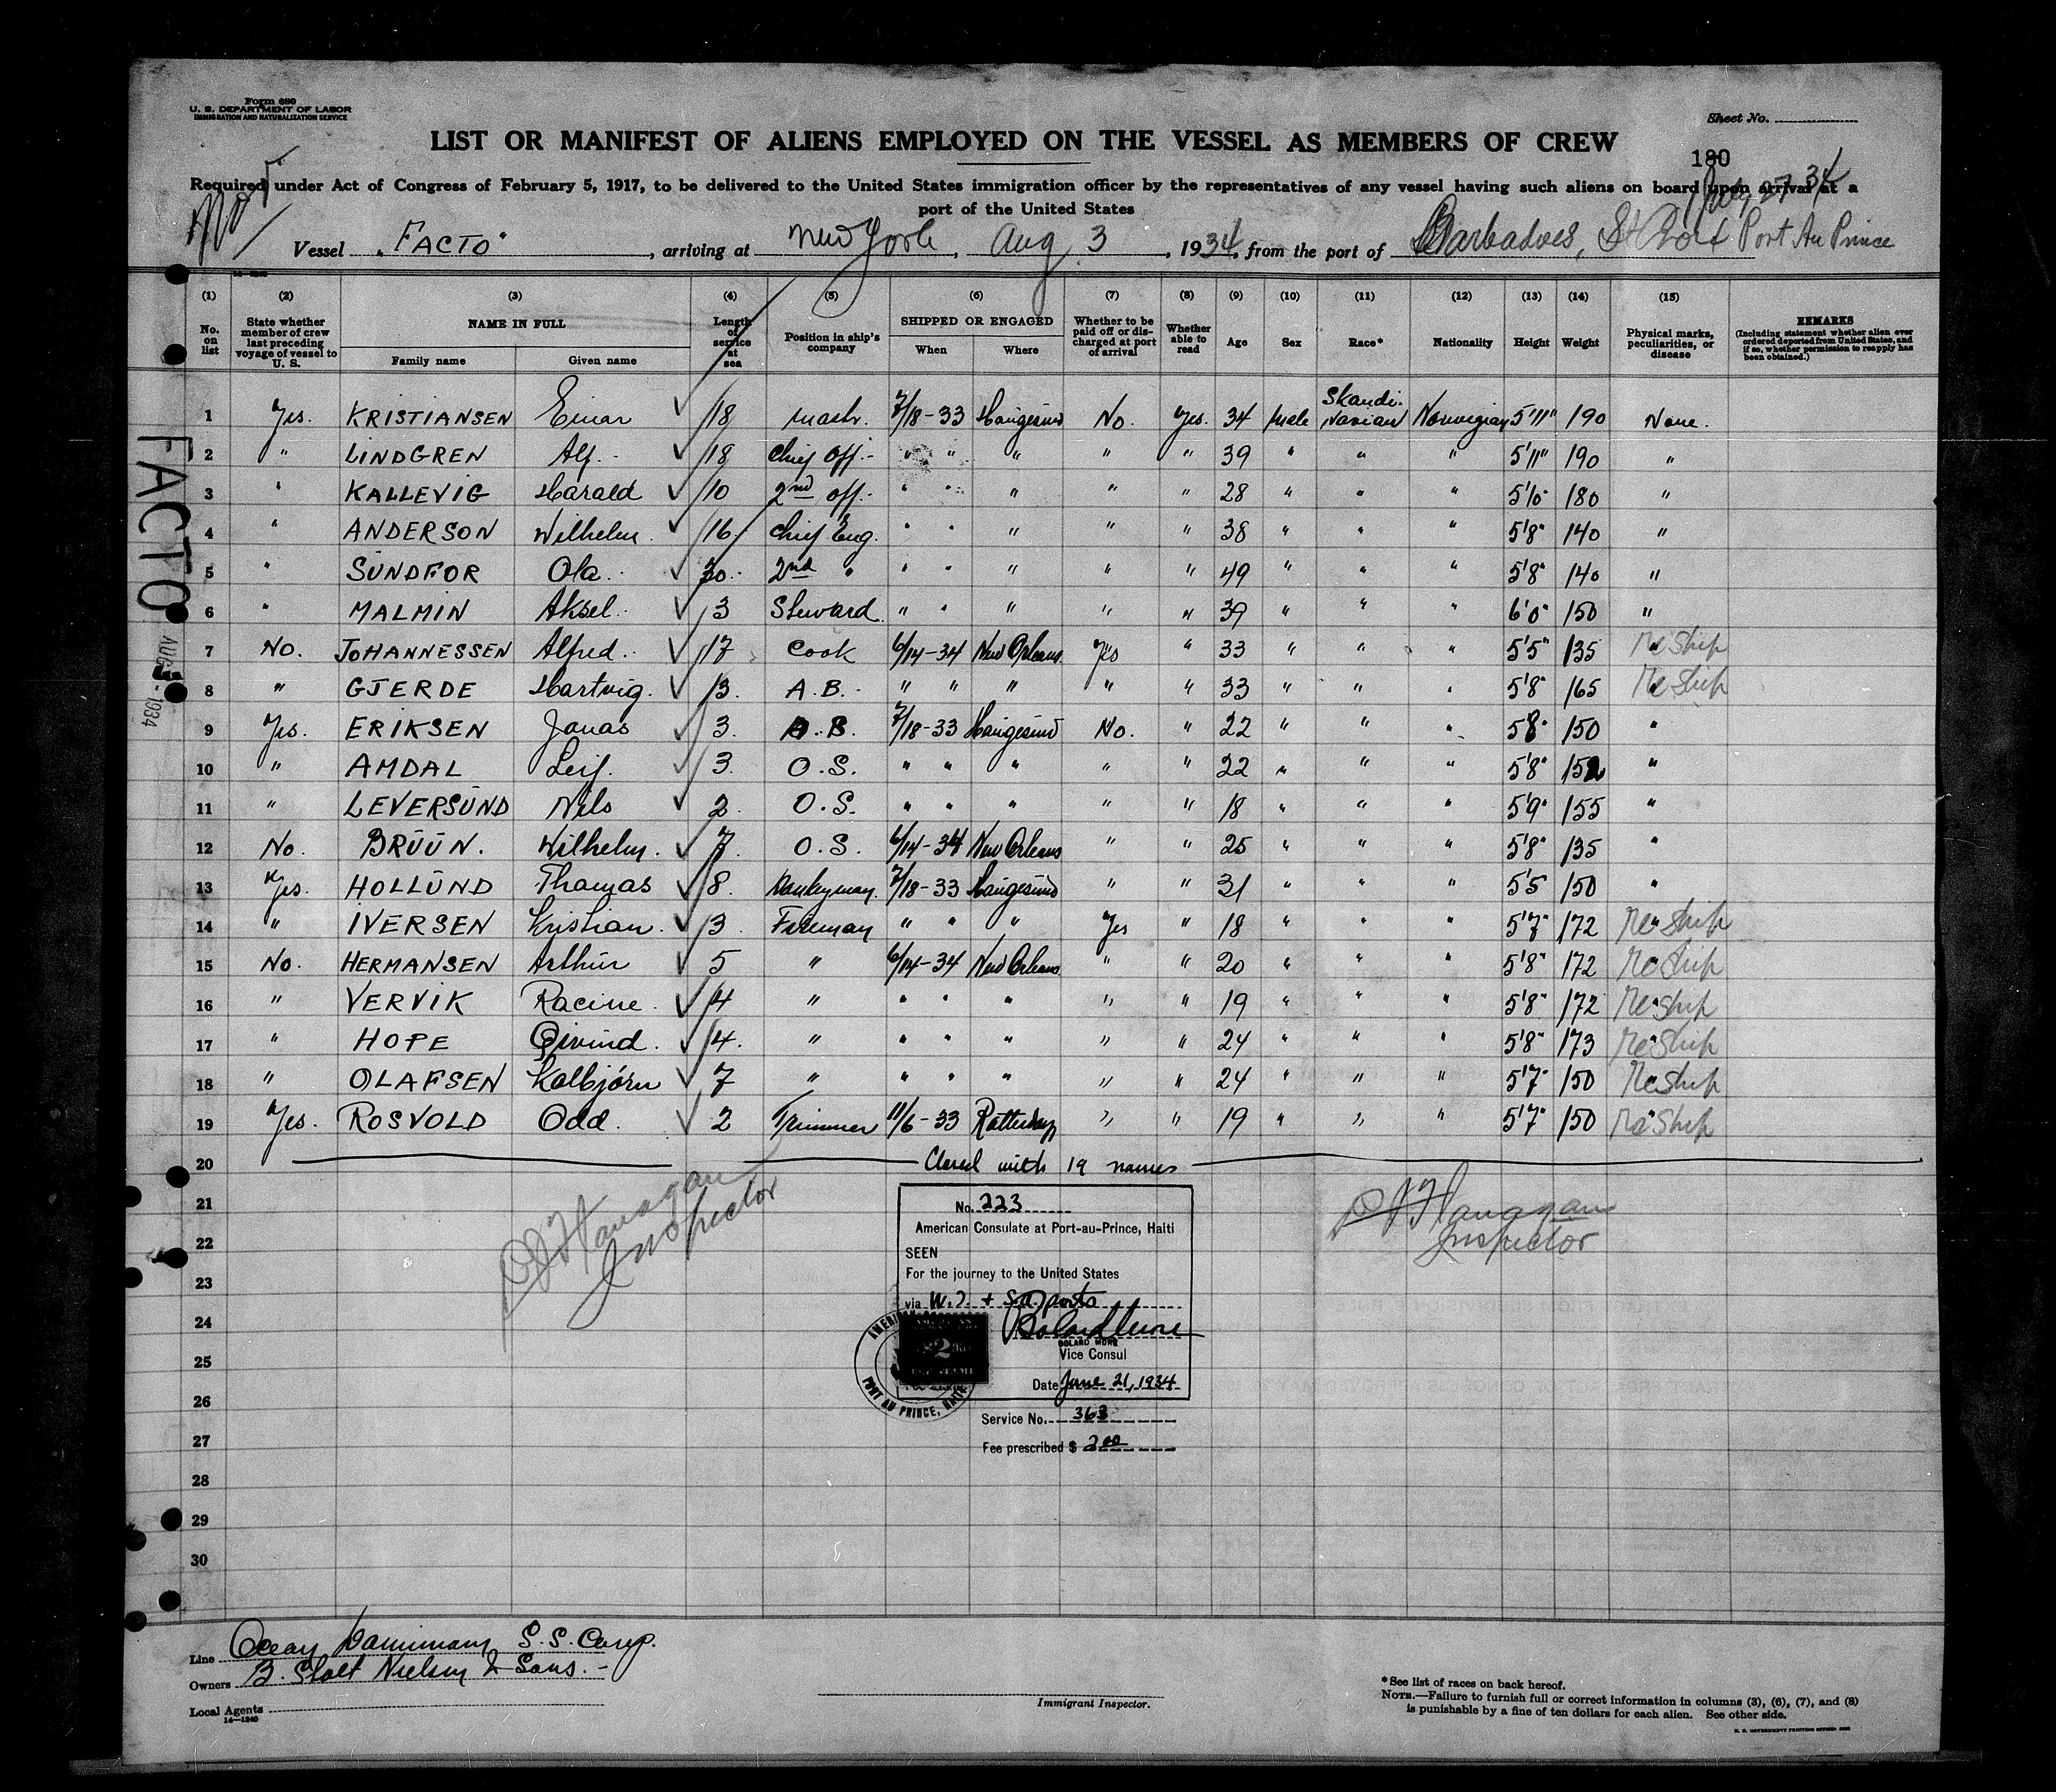 Form 680
U. S. DEPARTMENT OF LABOR
IMMIGRATION AND NATURALIZATION SERVICE
Sheet No.
LIST OR MANIFEST OF ALIENS EMPLOYED ON THE VESSEL AS MEMBERS OF CREW
180
Required under Act of Congress of February 5, 1917, to be delivered to the United States immigration officer by the representatives of any vessel having such aliens on board upon arrival at a
port of the United States
July 27 34
Vessel "FACTO", arriving at New York, Aug 3, 1934, from the port of Barbadoes, St Port Au Prince
(1) (2) (3) (4) (5) (6) (7) (8) (9) (10) (11) (12) (13) (14) (15)
No. on list
State whether member of crew last preceding voyage of vessel to U. S.
NAME IN FULL
Family name Given name
Length of service at sea
Position in ship's company
SHIPPED OR ENGAGED
When Where
Whether to be paid off or discharged at port of arrival
Whether able to read
Age
Sex
Race*
Nationality
Height
Weight
Physical marks, peculiarities, or disease
REMARKS
(Including statement whether alien ever ordered deported from United States, and if so, whether permission to reapply has been obtained.)
1 Yes. KRISTIANSEN Einar ✓ 18 Mastr. 7/18-33 Haugesund No. Yes. 34 Male Skandinavian Norwegian 5'11" 190 None.
2 " LINDGREN Alf. ✓ 18 Chief Off. " " " " " 39 " " " 5'11" 190 "
3 " KALLEVIG Harald ✓ 10 2nd off. " " " " " 28 " " " 5'10" 180 "
4 " ANDERSON Wilhelm ✓ 16 Chief Eng. " " " " " 38 " " " 5'8" 140 "
5 " SUNDFOR Ola. ✓ 30 2nd " " " " " " 49 " " " 5'8" 140 "
6 " MALMIN Aksel. ✓ 3 Steward " " " " " 39 " " " 6'0" 150 "
7 No. JOHANNESSEN Alfred. ✓ 17 Cook 6/14-34 New Orleans Yes " 33 " " " 5'5" 135 " Re Ship
8 " GJERDE Hartvig. ✓ 13. A.B. " " " " " 33 " " " 5'8" 165 " Re Ship
9 Yes. ERIKSEN Jonas ✓ 3. A.B. 7/18-33 Haugesund No. " 22 " " " 5'8" 150 "
10 " AMDAL Leif. ✓ 3. O.S. " " " " " 22 " " " 5'8" 152 "
11 " LEVERSUND Nils ✓ 2. O.S. " " " " " 18 " " " 5'9" 155 "
12 No. BRUUN. Wilhelm. ✓ 7. O.S. 6/14-34 New Orleans " " 25 " " " 5'8" 135 "
13 Yes. HOLLUND Thomas ✓ 8. Donkeyman. 7/18-33 Haugesund " " 31 " " " 5'5 150 "
14 " IVERSEN Kristian. ✓ 3. Fireman " " " Yes " 18 " " " 5'7" 172 " Re Ship
15 No. HERMANSEN Arthur ✓ 5 " 6/14-34 New Orleans " " 20 " " " 5'8" 172 " Re Ship
16 " VERVIK Racine. ✓ 4 " " " " " " 19 " " " 5'8" 172 " Re Ship
17 " HOPE Oivind. ✓ 4. " " " " " " 24 " " " 5'8" 173 " Re Ship
18 " OLAFSEN Kolbjórn ✓ 7 " " " " " " 24 " " " 5'7" 150 Re Ship
19 Yes. ROSVOLD Odd. ✓ 2 Trimmer 11/6-33 Rotterdam " " 19 " " " 5'7" 150 " Re Ship
20 Closed with 19 names
21
22
23
24
25
26
27
28
29
30
Flanagan
Inspector
Flanagan
Inspector
No. 223
American Consulate at Port-au-Prince, Haiti
SEEN
For the journey to the United States
via W.I. + S.A. ports
Vice Consul
Date June 21, 1934
Service No. 363
Fee prescribed $ 2.00
PORT AU PRINCE, HAITI
FACTO
AUG 1934
Line Ocean S.S. Corp.
Owners B. Stolt Nielsen & Sons.
Local Agents
14-1240
Immigrant Inspector.
*See list of races on back hereof.
NOTE.—Failure to furnish full or correct information in columns (3), (6), (7), and (8)
is punishable by a fine of ten dollars for each alien. See other side.